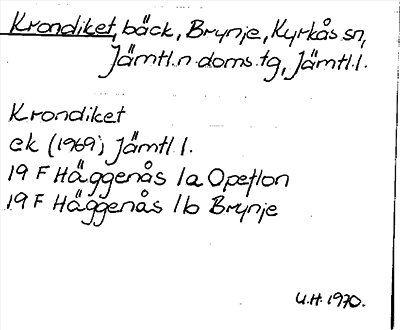 Krondiket, bäck, Brynje, Kyrkås sn,
Jämtl.n.doms.tg, Jämtl.l.
Krondiket
ek (1969) Jämtl l.
19 F Häggenås 1a Opetlon
19 F Häggenås 1b Brynje
U.H. 1970.